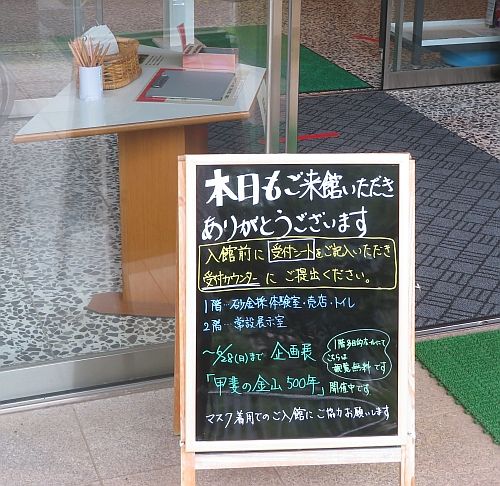 本日もご来館いただき
ありがとうございます
入館前に受付シートをご記入いただき
受付カウンターにご提出ください。
1階…砂金採体験室・売店・トイレ
2階…常設展示室
～6/28(日)まで 企画展
「甲斐の金山500年」開催中です
1階多目的ホールにて
こちらは
観覧無料です
マスク着用でのご入館にご協力お願いします